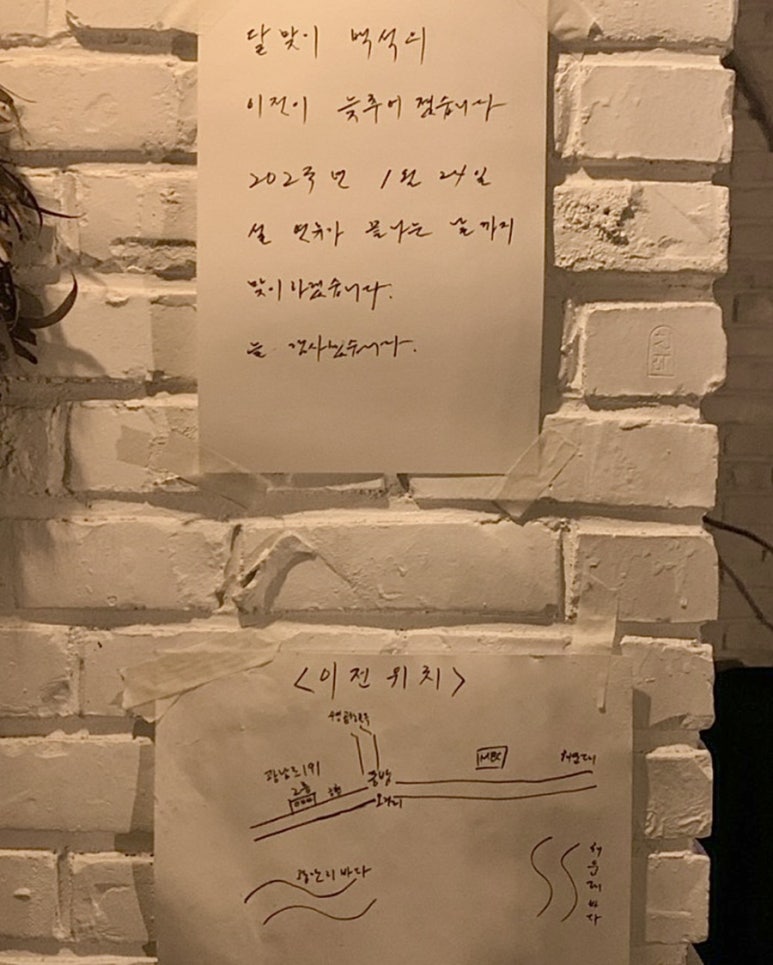 달맞이 백석의
이전이 늦추어 졌습니다
2023년 1월 24일
설 연휴가 끝나는 날까지
맞이하겠습니다.
늘 감사했습니다.
<이전위치>
MBC
해운대
광남로191
2층
광안리 바다
해운대 바다